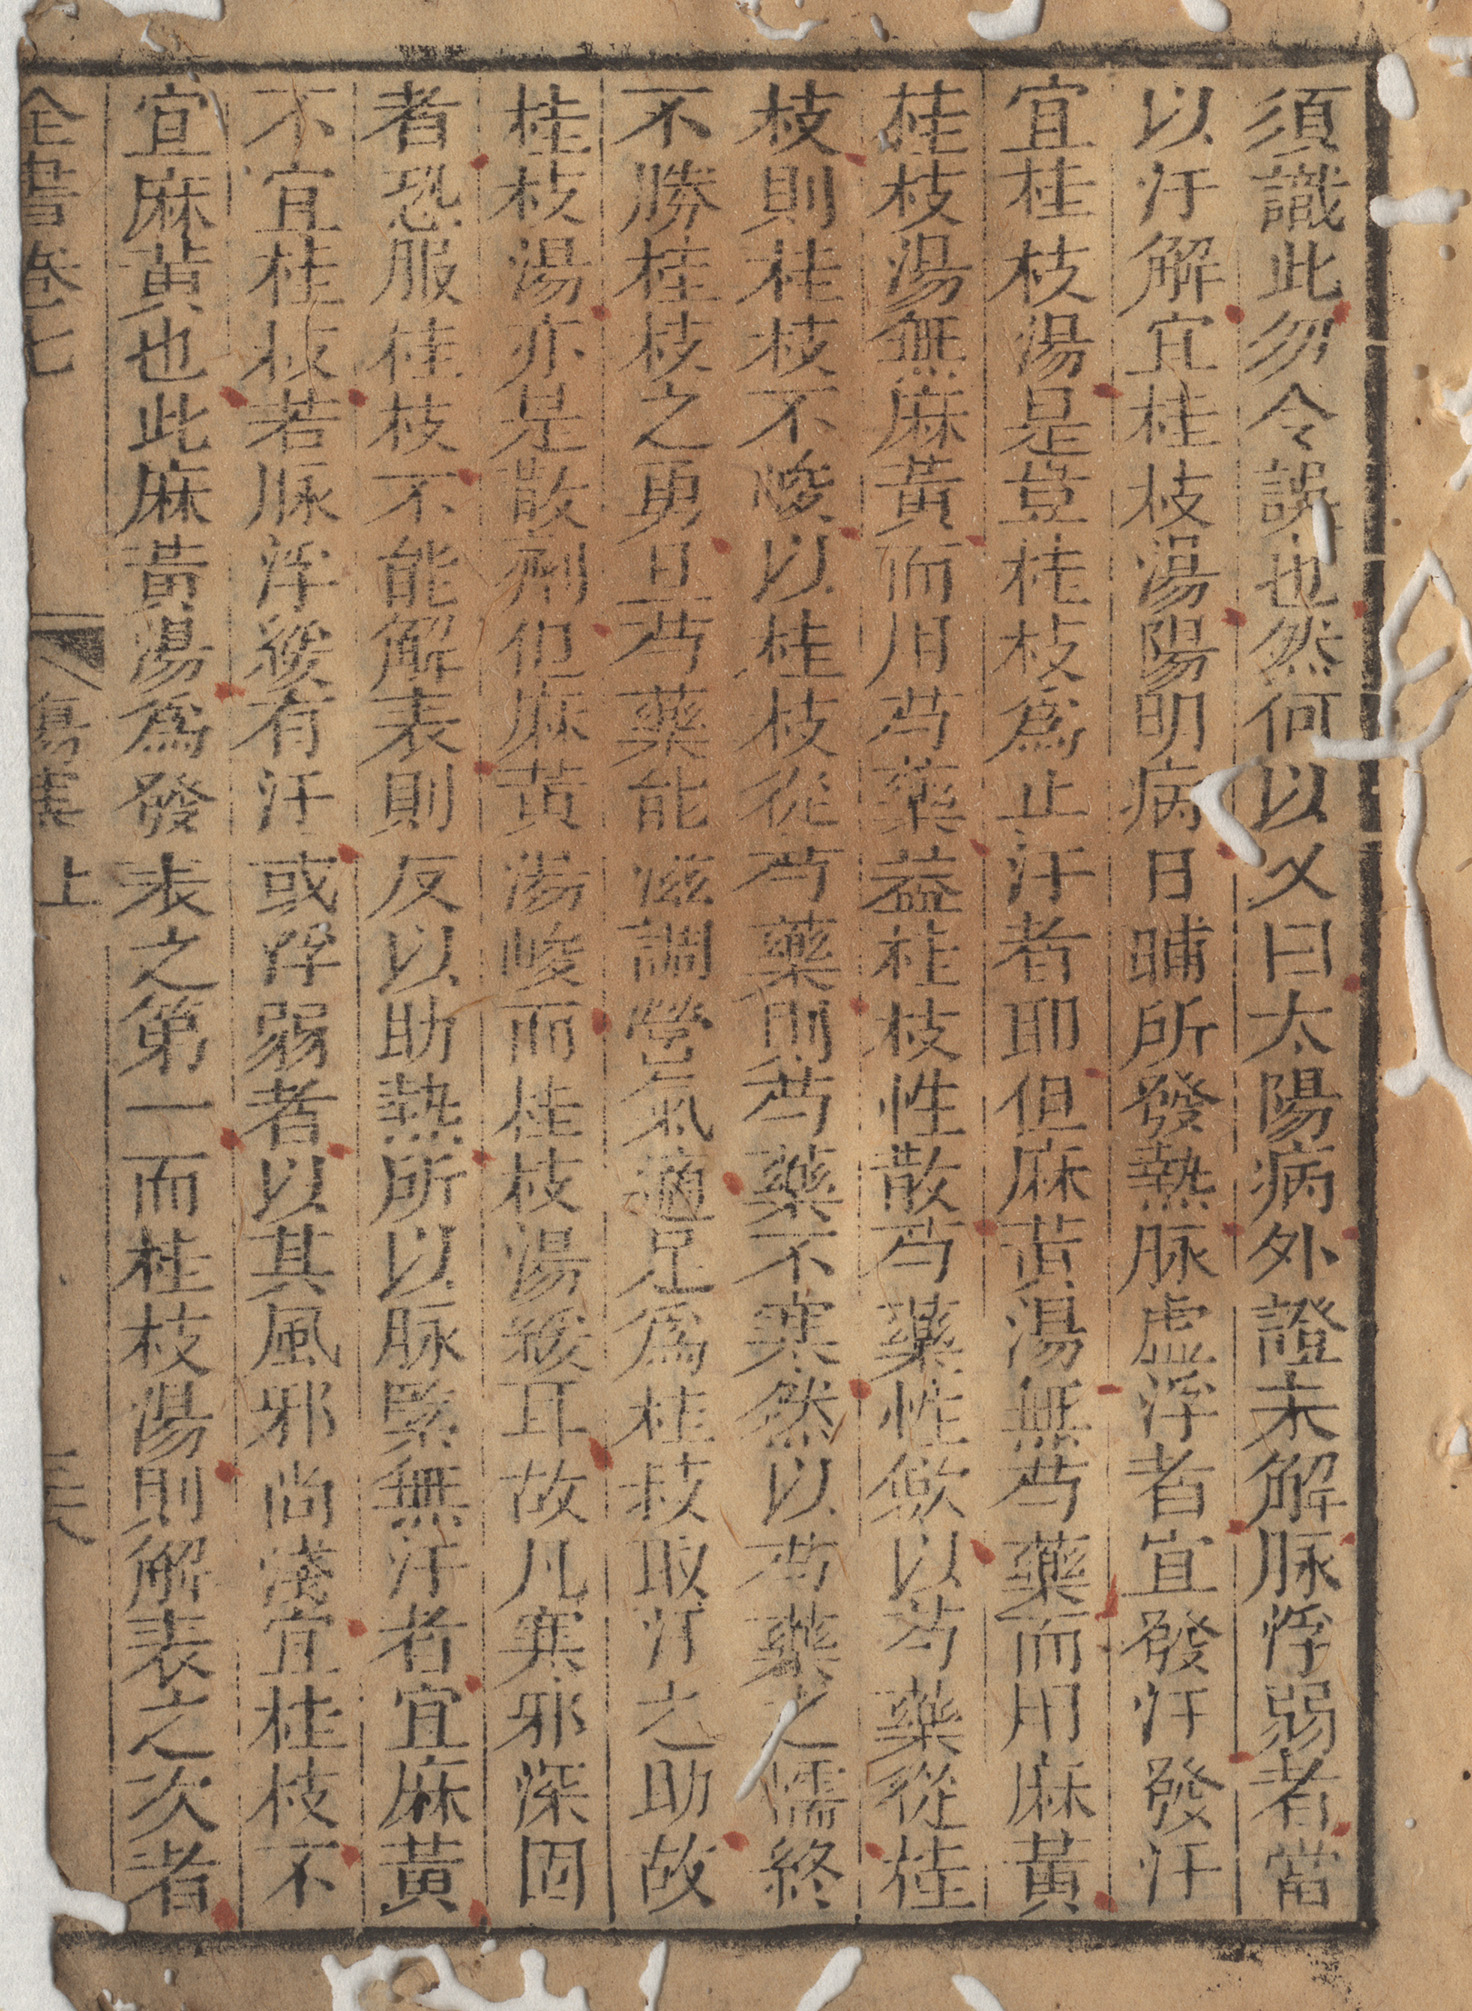 須識此勿令誤也然何以又曰太陽病外證未解脉浮弱者當
以汗解宜桂枝湯陽明病日晡所發熱脉虛浮者宜發汗發汗
宜桂枝湯是豈桂枝爲止汗者耶但麻黃湯無芍藥而用麻黃
桂枝湯無麻黃而用芍藥益桂枝性散芍藥性斂以芍藥從桂
枝則桂枝不峻以桂枝從芍藥則芍藥不寒然以芍藥之懦終
不勝桂枝之勇且芍藥能滋調營氣適足爲桂枝取汗之助故
桂枝湯亦是散劑但麻黃湯峻而桂枝湯緩耳故凡寒邪深固
者恐服桂枝不能解表則反以助熱所以脉緊無汗者宜麻黃
不宜桂枝若脉浮緩有汗或浮弱者以其風邪尚淺宜桂枝不
宜麻黃也此麻黃湯爲發表之第一而桂枝湯則解表之次者
全書卷七 傷寒上